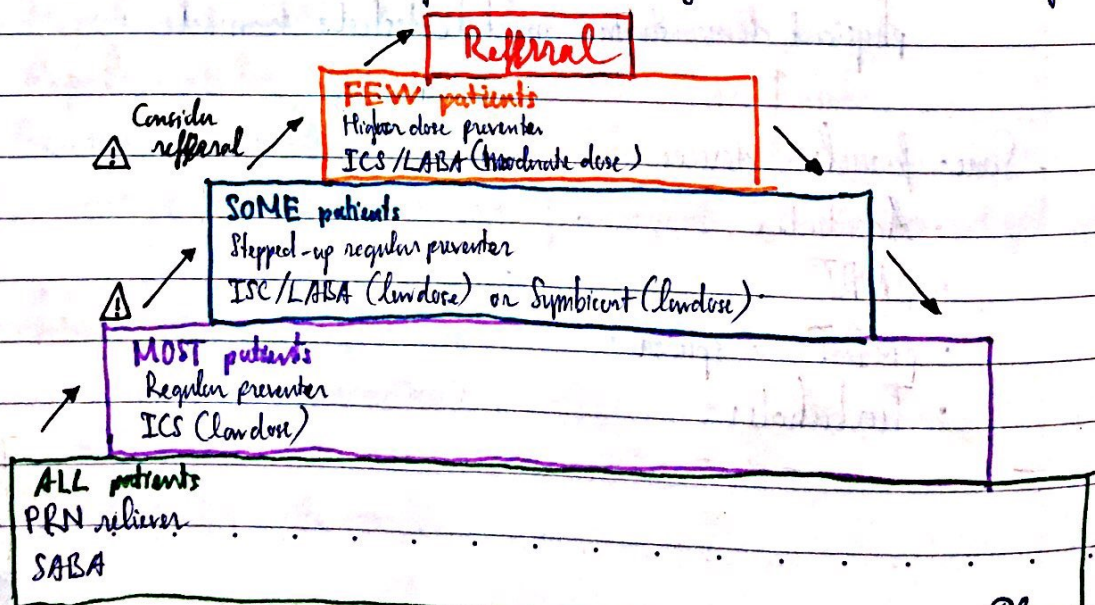 Refferal
FEW patients
Higher dose preventer
ICS/LABA (moderate dose)
Consider
refferal
SOME patients
Stepped-up regular preventer
ISC/LABA (low dose) or Symbicort (low dose).
MOST patients
Regular preventer
ICS (low dose)
ALL patients
PRN reliever
SABA